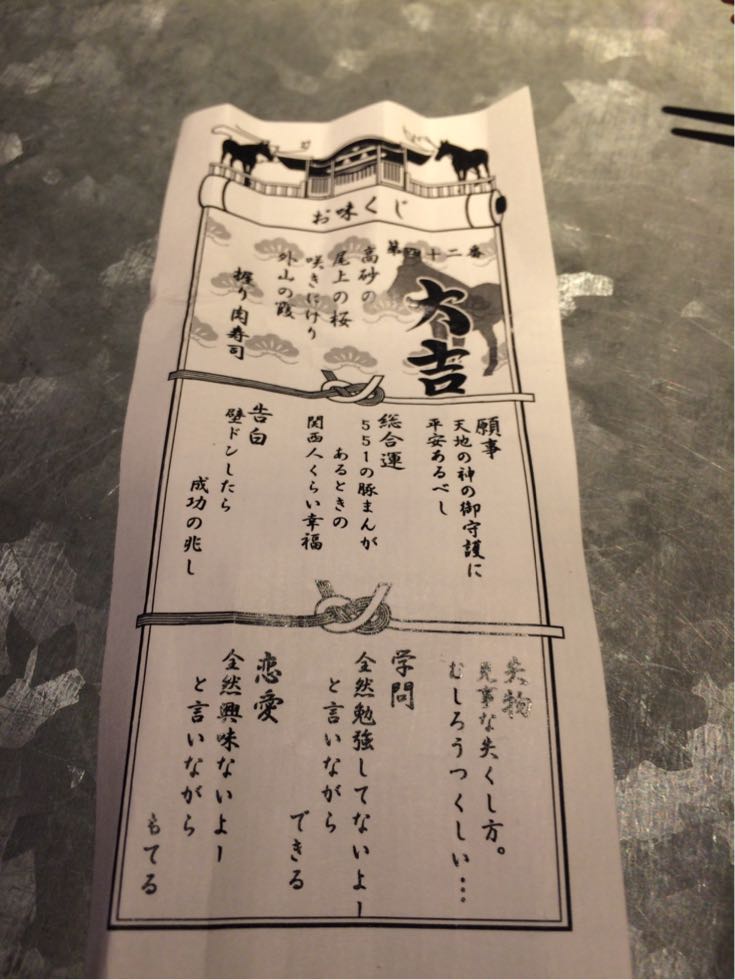 お味くじ
第四十二番
大吉
高砂の
尾上の桜
咲きにけり
外山の霞
握り肉寿司
願事
天地の神の御守護に
平安あるべし
総合運
551の豚まんが
あるときの
関西人くらい幸福
告白
壁ドンしたら
成功の兆し
失物
見事な失くし方。
むしろうつくしい…
学問
全然勉強してないよー
と言いながら
できる
恋愛
全然興味ないよー
と言いながら
もてる